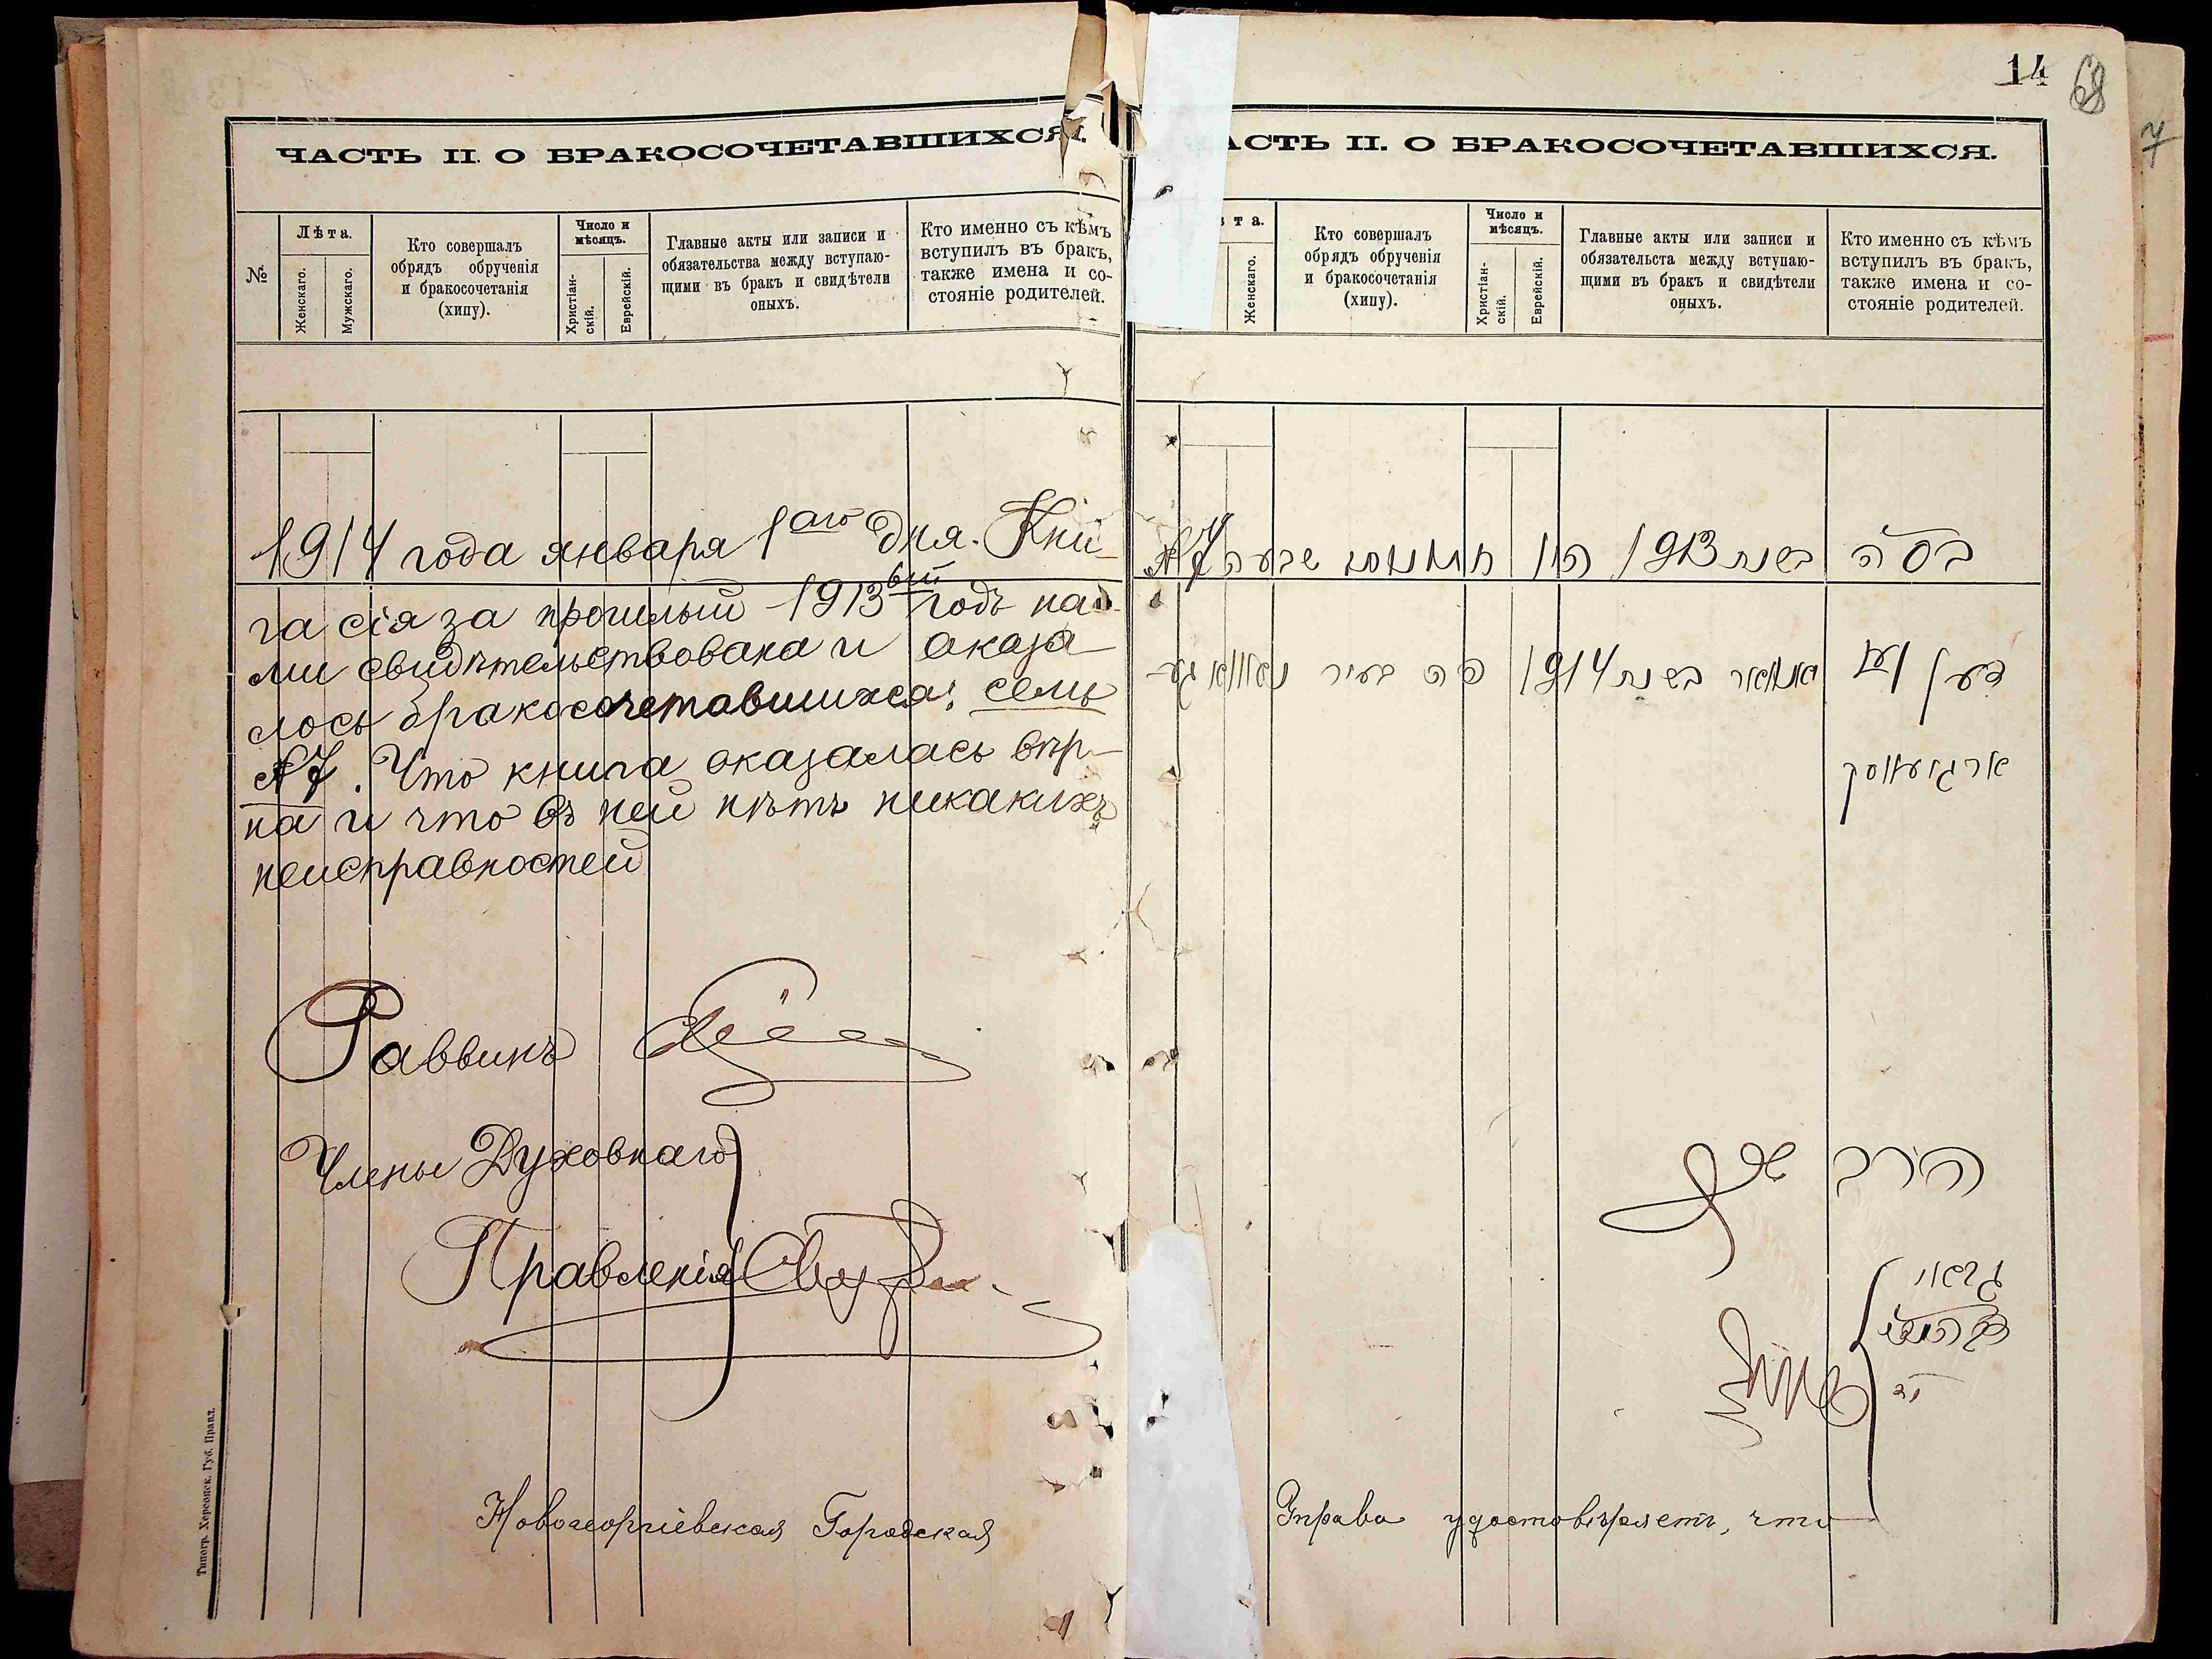 14
68
7
ЧАСТЬ II. О БРАКОСОЧЕТАВШИХСЯ.
№
Лѣта.
Женскаго.
Мужскаго.
Кто совершалъ
обрядъ обрученія
и бракосочетанія
(хипу).
Число и
мѣсяцъ.
Христіан-
скій.
Еврейскій.
Главные акты или записи и
обязательства между вступаю-
щими въ бракъ и свидѣтели
оныхъ.
Кто именно съ кѣмъ
вступилъ въ бракъ,
также имена и со-
стояніе родителей.
1914 года января 1аго дня. Кни-
га сія за прошлый 1913ый годъ на-
ми свидѣтельствована и оказа-
лось бракосочетавшихся: семь
№7. Что книга оказалась вѣр-
на и что въ ней нѣтъ никакихъ
неисправностей
Раввинъ
Члены Духовнаго
Правленія
Новогеоргіевская Городская
Типогр. Херсонск. Губ. Правл.
АСТЬ II. О БРАКОСОЧЕТАВШИХСЯ.
та.
Женскаго.
Кто совершалъ
обрядъ обрученія
и бракосочетанія
(хипу).
Число и
мѣсяцъ.
Христіан-
скій.
Еврейскій.
Главные акты или записи и
обязательста между вступаю-
щими въ бракъ и свидѣтели
оныхъ.
Кто именно съ кѣмъ
вступилъ въ бракъ,
также имена и со-
стояніе родителей.
בשנת 1913 היו חתונות שבעה №7
יאנואר בשנת 1914 פה בעיר
הרב
Управа удостовѣряетъ, что